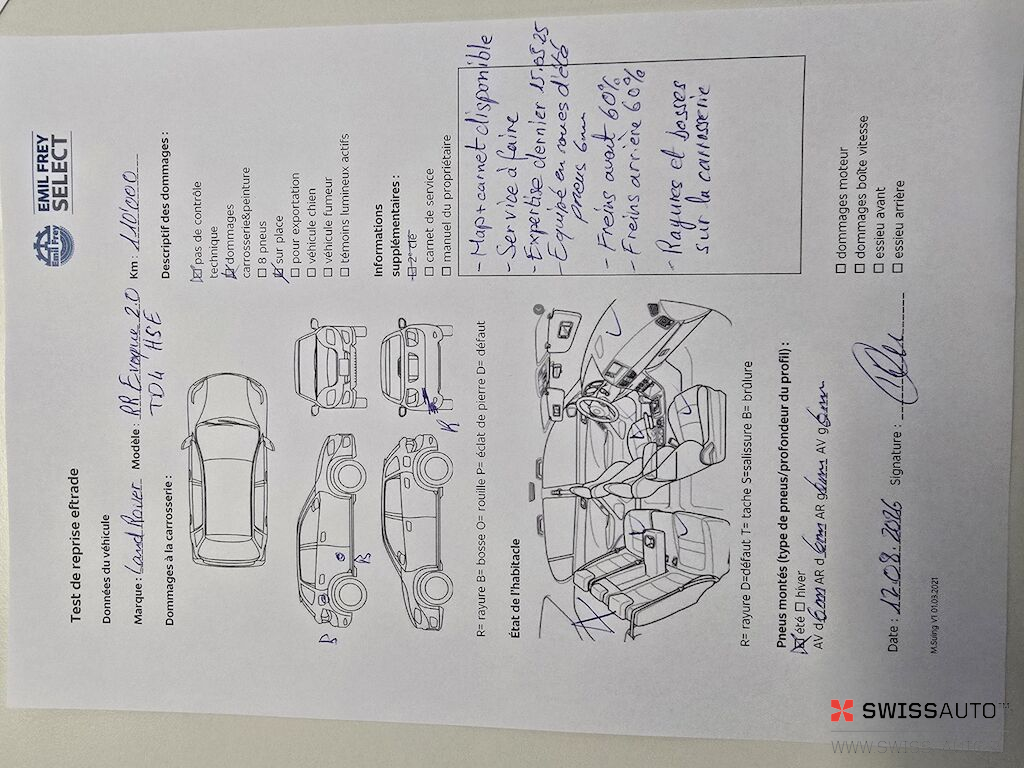 Test de reprise eftrade
EMIL FREY
SELECT
Emil Frey
Données du véhicule
Marque : Land Rover Modèle : RR Evoque 2.0 Km : 110'000
TD4 HSE
Dommages à la carrosserie :
Descriptif des dommages :
pas de contrôle
technique
dommages
carrosserie&peinture
8 pneus
sur place
pour exportation
véhicule chien
véhicule fumeur
témoins lumineux actifs
Informations
supplémentaires :
2e clé
carnet de service
manuel du propriétaire
B
B
R
R= rayure B= bosse O= rouille P= éclat de pierre D= défaut
- Map + carnet disponible
- Service à faire
- Expertise dernier 15.09.25
- Equipé en roues d'été
pneus 6mm
- Freins avant 60%
- Freins arrière 60%
- Rayures et bosses
sur la carrosserie
État de l'habitacle
R= rayure D=défaut T= tache S=salissure B= brûlure
Pneus montés (type de pneus/profondeur du profil) :
été hiver
AV d 6mm AR d 6mm AR g 6mm AV g 6mm
dommages moteur
dommages boîte vitesse
essieu avant
essieu arrière
Date : Signature :
M.Suing V1 01.03.2021
SWISSAUTO™
WWW.SWISS-AUTO